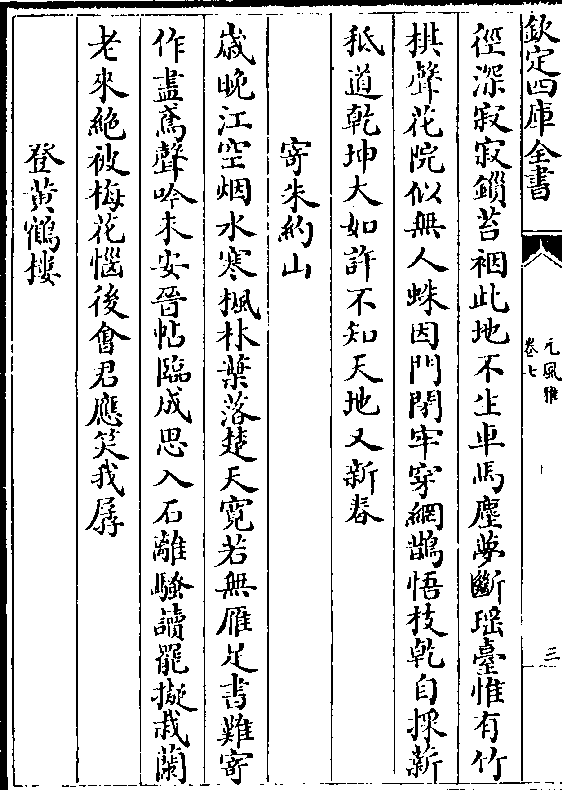 欽定四庫全書
元風雅
卷七
三
徑深寂寂鎖苔裀此地不生車馬塵夢斷瑶臺惟有竹
棋聲花院似無人蛛因門閉牢穿網鵲悟枝乾自採薪
秪道乾坤大如許不知天地又新春
寄朱約山
歲晚江空烟水寒楓林葉落楚天寛若無雁足書難寄
作盡鳶聲吟未安晉帖臨成思入石離騷讀罷擬栽蘭
老來絶被梅花惱後會君應笑我孱
登黄鶴樓